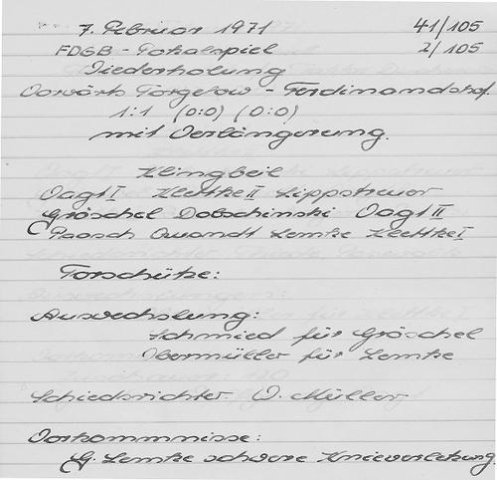 7. Februar 1971 41/105
FDGB-Pokalspiel 2/105
Wiederholung
Vorwärts Torgelow - Ferdinandshof
1:1 (0:0) (0:0)
mit Verlängerung.
Klingbeil
Vogt I Klettke II Lippstreuer
Gröschel Dobschinski Vogt II
Paasch Quandt Lemke Klettke I
Torschütze:
Auswechslung:
Schmied für Gröschel
Obermüller für Lemke
Schiedsrichter O. Müller
Vorkommnisse:
G. Lemke schwere Knieverletzung